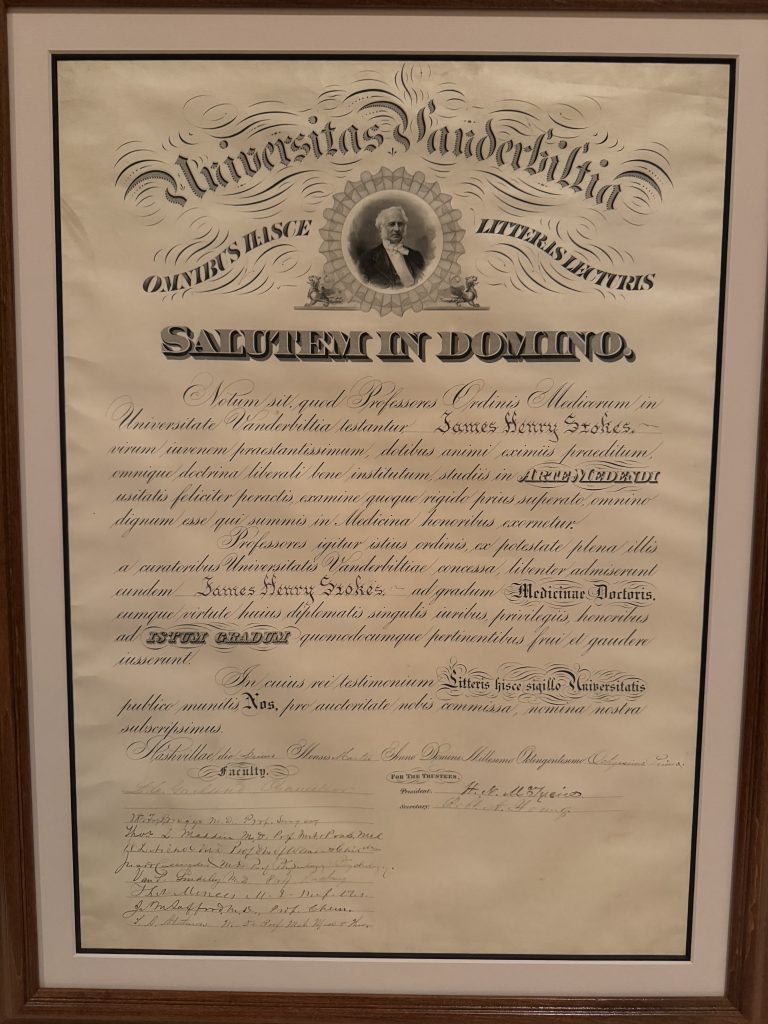 Universitas Vanderbiltia
OMNIBUS HASCE LITTERAS LECTURIS
SALUTEM IN DOMINO.
Notum sit, quod Professores Ordinis Medicorum in
Universitate Vanderbiltia testantur James Henry Stokes.
virum iuvenem praestantissimum, dotibus animi eximiis praeditum,
omnique doctrina liberali bene institutum, studiis in ARTE MEDENDI
usitatis feliciter peractis, examine quoque rigido prius superato, omnino
dignum esse qui summis in Medicina honoribus exornetur.
Professores igitur istius ordinis, ex potestate plena illis
a curatoribus Universitatis Vanderbiltiae concessa, libenter admiserunt
eundem James Henry Stokes. ad gradum Medicinae Doctoris,
eumque virtute huius diplomatis singulis iuribus, privilegiis, honoribus
ad ISTUM GRADUM quomodocumque pertinentibus frui et gaudere
iusserunt.
In cuius rei testimonium Litteris hisce sigillo Universitatis
publico munitis Nos, pro auctoritate nobis commissa, nomina nostra
subscripsimus.
Nashvillae, die Primo Mensis Martii Anno Domini Millesimo Octingentesimo Octogesimo Primo.
Faculty.
FOR THE TRUSTEES,
L.C. Garland Chancellor
President. H. N. McTyeire
Secretary. Robt. A. Young
W. T. Briggs M.D. Prof. Surgery
Thos. L. Maddin M.D. Prof.
M.D. Prof.
Van S. Lindsley M.D. Prof.
Thos. Menees M.D. Prof. Obs.
J. M. Safford, M.D., Prof. Chem.
M.D. Prof.